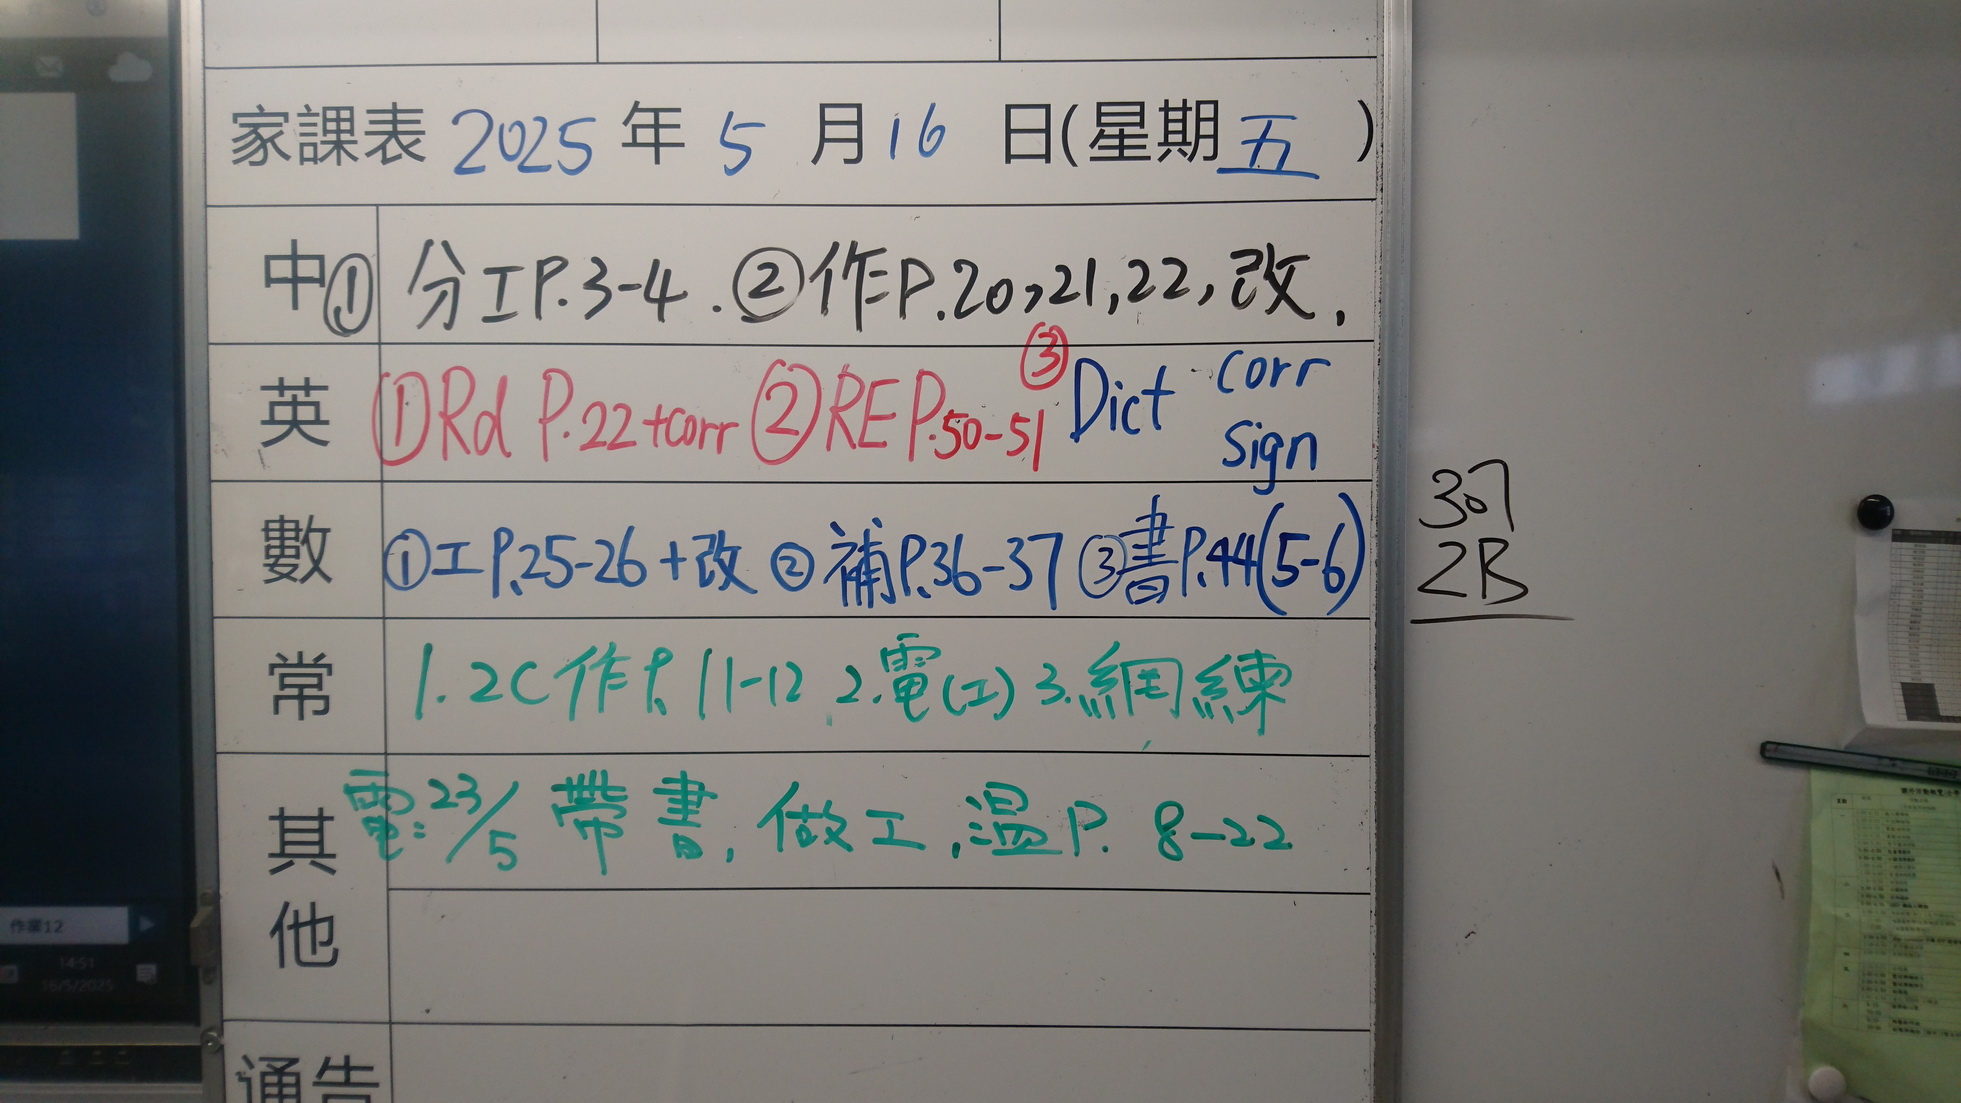 家課表 2025 年 5 月 16 日(星期 五 )
中 ① 分工P.3-4. ②作P.20,21,22,改.
英 ①Rd P.22+corr ②RE P.50-51 ③Dict corr
sign
數 ①工P.25-26+改 ②補P.36-37 ③書P.44(5-6)
常 1. 2C作P. 11-12 2.電(工) 3.網練
其他 電:23/5 帶書, 做工, 温P. 8-22
通告
307
2B
作業12
14:51
16/5/2025